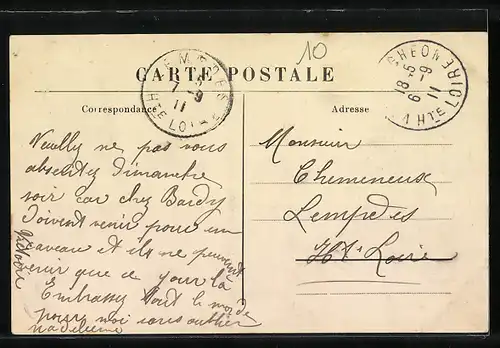 10
CARTE POSTALE
Correspondance
Adresse
LEMPDES
7-9
11
Hte LOIRE
18 15
6-9
11
Hte LOIRE
Veuilly ne pas vous
absentez Dimanche
soir car chez Bardy
doivent venir pour un
caveau et ils ne peuvent
venir que ce jour là
Embrassez tout le monde
pour moi sans oublier
Madeleine
Monsieur
Chemeneux
Lempdes
Hte Loire